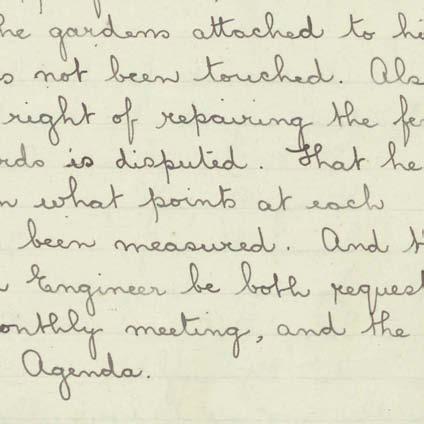 he gardens attached to hi
s not been touched. Als
right of repairing the fe
rds is disputed. That he
n what points at each
been measured. And th
Engineer be both request
onthly meeting, and the
Agenda.